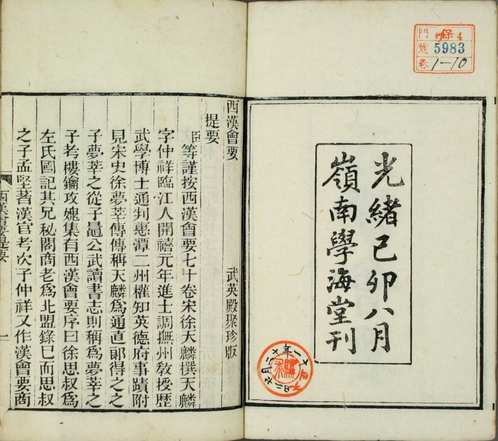 5983
卷 1-10
光緒己卯八月
嶺南學海堂刊
西漢會要 武英殿聚珍版
提要
臣等謹按西漢會要七十卷宋徐天麟撰天麟
字仲祥臨江人開禧元年進士調撫州敎授歷
武學博士通判惠潭二州權知英德府事蹟附
見宋史徐夢莘傳傳稱天麟爲通直郞得之之
子夢莘之從子晁公武讀書志則稱爲夢莘之
子考樓鑰攻媿集有西漢會要序曰徐思叔爲
左氏國記其兄秘閣商老爲北盟錄已而思叔
之子孟堅著漢官考次子仲祥又作漢會要商
西漢會要提要 一